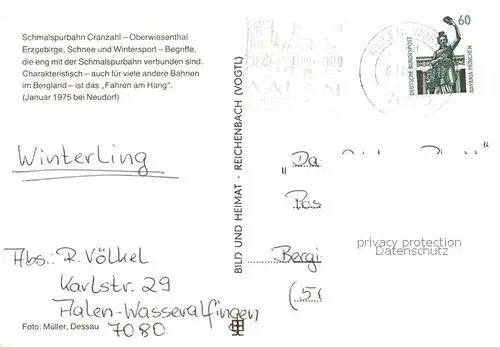 Schmalspurbahn Cranzahl – Oberwiesenthal
Erzgebirge, Schnee und Wintersport – Begriffe,
die eng mit der Schmalspurbahn verbunden sind.
Charakteristisch – auch für viele andere Bahnen
im Bergland – ist das „Fahren am Hang".
(Januar 1975 bei Neudorf)
Winterling
Abs.: R. Völkel
Karlstr. 29
Aalen-Wasseralfingen
7080
Foto: Müller, Dessau
BILD UND HEIMAT · REICHENBACH (VOGTL)
AALEN
60
DEUTSCHE BUNDESPOST
BAVARIA MÜNCHEN
„Da
Pos
Bergi
(5
privacy protection
Datenschutz